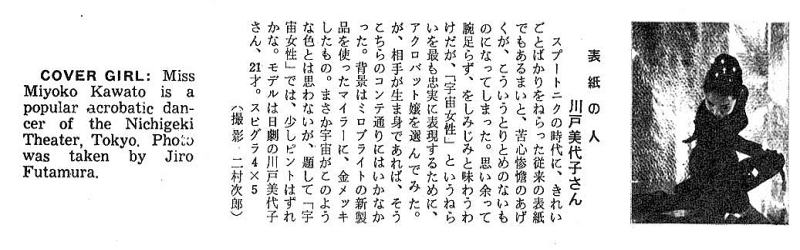 COVER GIRL: Miss
Miyoko Kawato is a
popular acrobatic dan-
cer of the Nichigeki
Theater, Tokyo. Photo
was taken by Jiro
Futamura.
表紙の人
川戸美代子さん
スプートニクの時代に、きれい
ごとばかりをねらった従来の表紙
でもあるまいと、苦心惨憺のあげ
くが、こういうとりとめのないも
のになってしまった。思い余って
腕足らず、をしみじみと味わうわ
けだが、「宇宙女性」というねら
いを最も忠実に表現するために、
アクロバット嬢を選んでみた。
が、相手が生ま身であれば、そう
こちらのコンテ通りにはいかなか
った。背景はミロブライトの新製
品を使ったマイラーに、金メッキ
したもの。まさか宇宙がこのよう
な色とは思わないが、題して「宇
宙女性」では、少しピントはずれ
かな。モデルは日劇の川戸美代子
さん、21才。スピグラ4×5
（撮影 二村次郎）